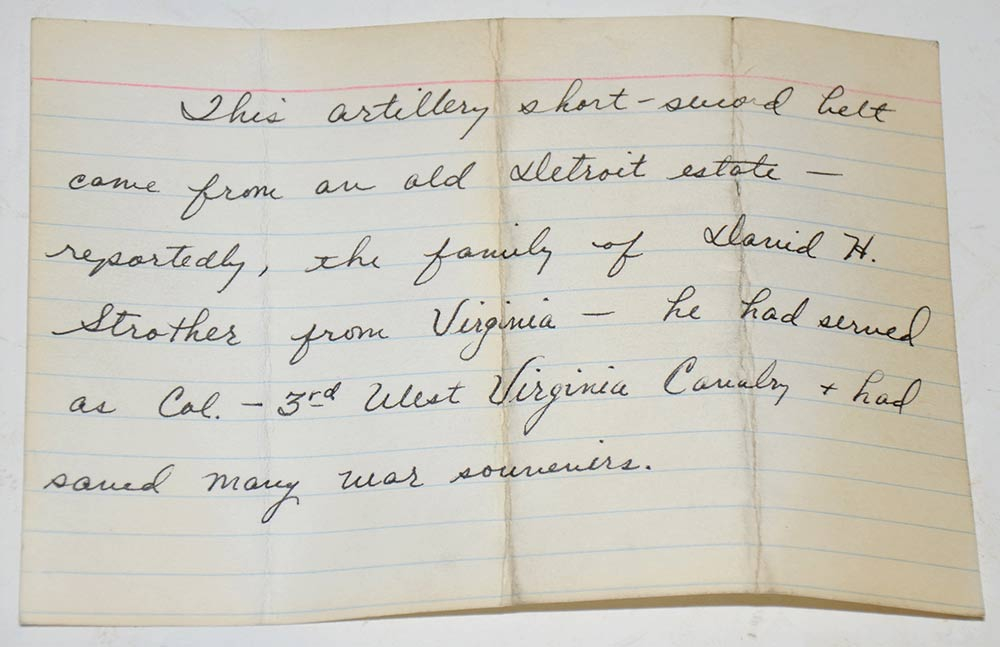 This artillery short-sword belt
came from an old Detroit estate —
reportedly, the family of David H.
Strother from Virginia — he had served
as Col. - 3rd West Virginia Cavalry + had
saved many war souvenirs.